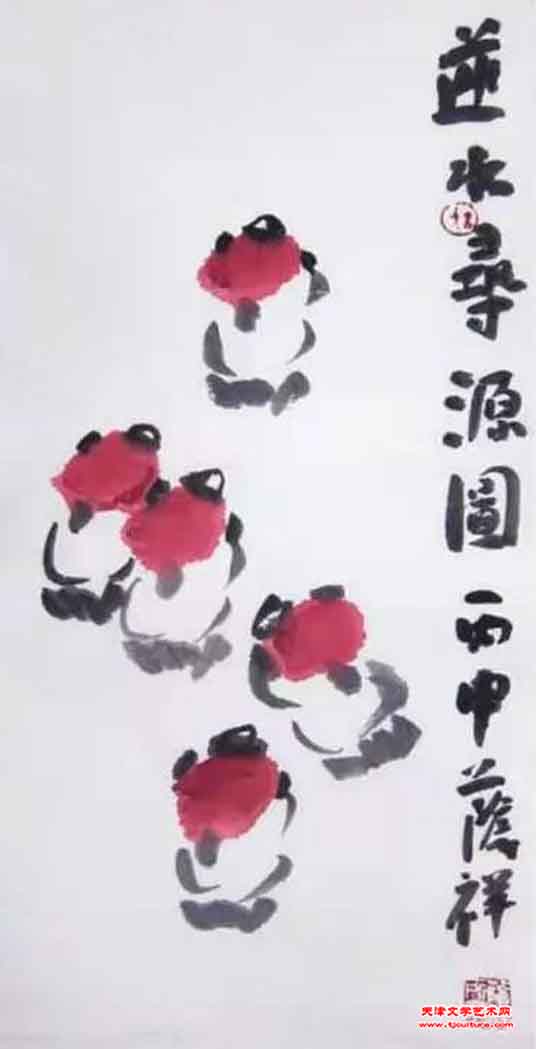 逆水尋源圖 丙申 蔭祥
天津文学艺术网
www.tjculture.com